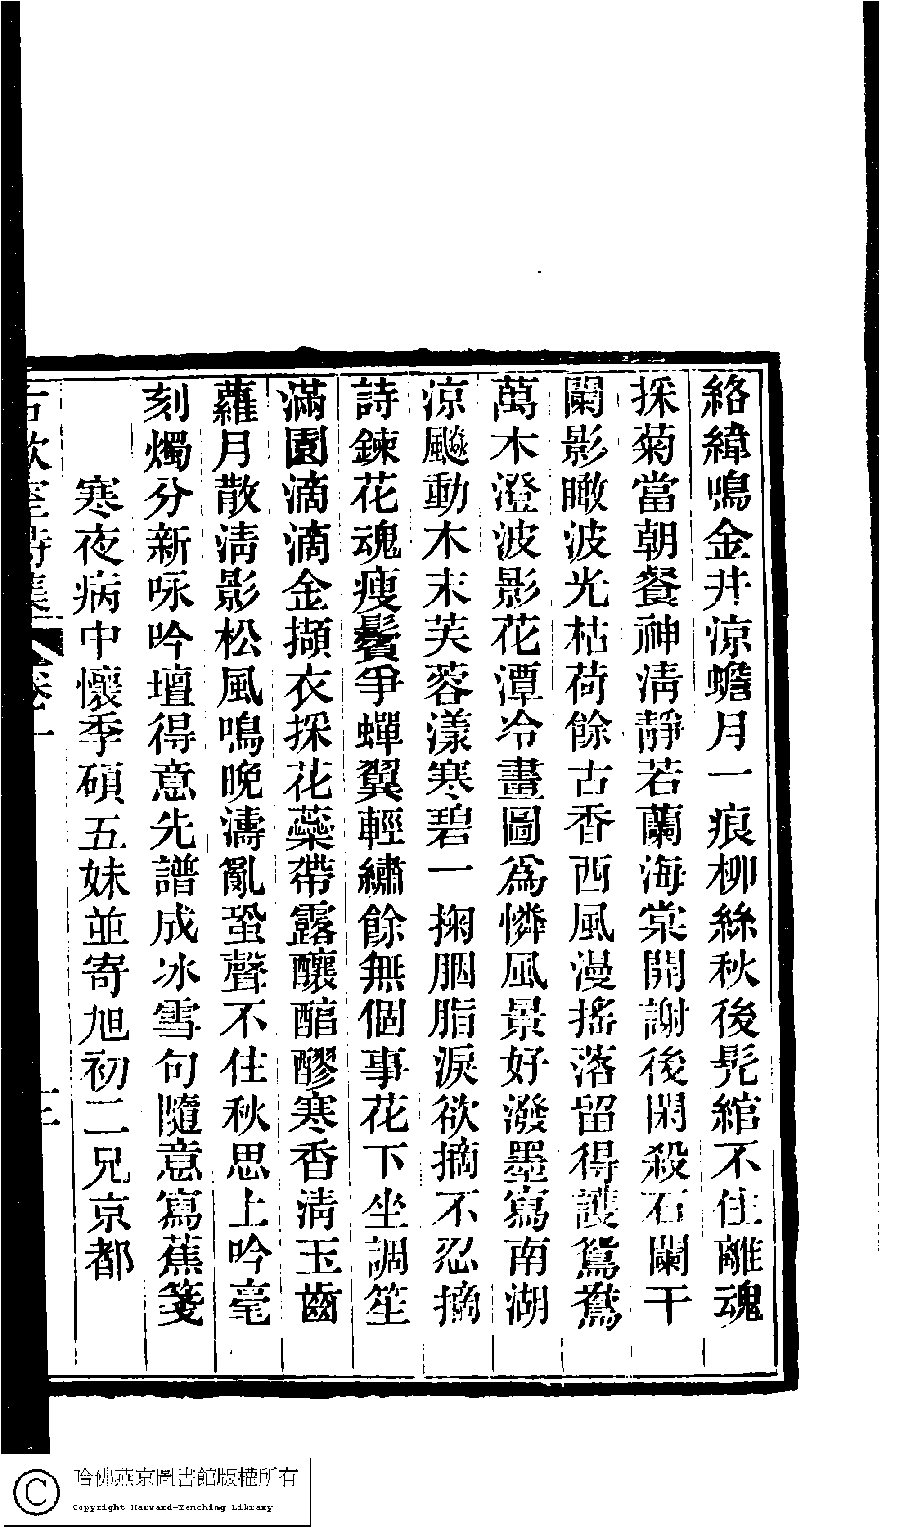 絡緯鳴金井涼蟾月一痕柳絲秋後髡綰不住離魂
採菊當朝餐神淸靜若蘭海棠開謝後閑殺石闌干
闌影瞰波光枯荷餘古香西風漫搖落留得護鴛鴦
萬木澄波影花潭冷畫圖爲憐風景好潑墨寫南湖
涼颸動木末芙蓉漾寒碧一掬胭脂淚欲摘不忍摘
詩鍊花魂瘦鬢爭蟬翼輕繡餘無個事花下坐調笙
滿園滴滴金擷衣採花蘂帶露釀醅醪寒香淸玉齒
蘿月散淸影松風鳴晚濤亂蛩聲不住秋思上吟毫
刻燭分新咏吟壇得意先譜成冰雪句隨意寫蕉箋
寒夜病中懷季碩五妹並寄旭初二兄京都
卷一
哈佛燕京圖書館版權所有
Copyright Harvard-Yenching Library